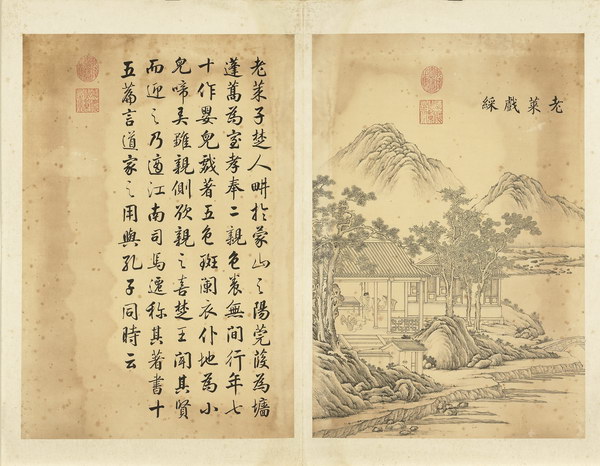 老萊戲綵
老萊子楚人畊於蒙山之陽莞葭為墻
蓬蒿為室孝奉二親色養無間行年七
十作嬰兒戲著五色斑闌衣仆地為小
兒啼弄雛親側欲親之喜楚王聞其賢
而迎之乃適江南司馬遷称其著書十
五篇言道家之用與孔子同時云